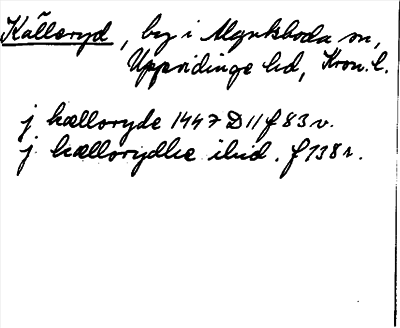 Källeryd, by i Älgultsboda sn,
Uppvidinge hd, Kron. l.
j kælloryde 1447 D 11 f 83 v.
j kællorydhe ibid. f 138 r.